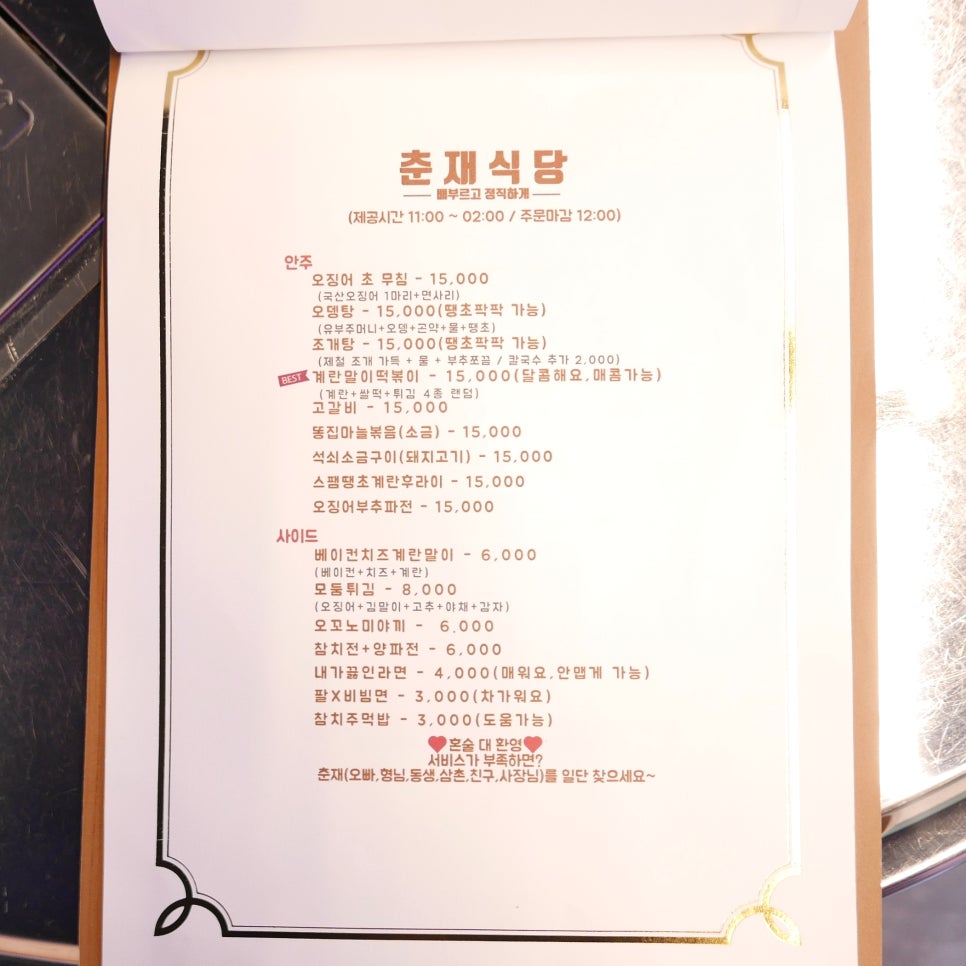 춘재식당
배부르고 정직하게
(제공시간 11:00 ~ 02:00 / 주문마감 12:00)
안주
오징어 초 무침 - 15,000
(국산오징어 1마리+면사리)
오뎅탕 - 15,000(땡초팍팍 가능)
(유부주머니+오뎅+곤약+물+땡초)
조개탕 - 15,000(땡초팍팍 가능)
(제철 조개 가득 + 물 + 부추쪼끔 / 칼국수 추가 2,000)
BEST 계란말이떡볶이 - 15,000(달콤해요,매콤가능)
(계란+쌀떡+튀김 4종 랜덤)
고갈비 - 15,000
똥집마늘볶음(소금) - 15,000
석쇠소금구이(돼지고기) - 15,000
스팸땡초계란후라이 - 15,000
오징어부추파전 - 15,000
사이드
베이컨치즈계란말이 - 6,000
(베이컨+치즈+계란)
모둠튀김 - 8,000
(오징어+김말이+고추+야채+감자)
오꼬노미야끼 - 6,000
참치전+양파전 - 6,000
내가끓인라면 - 4,000(매워요,안맵게 가능)
팔X비빔면 - 3,000(차가워요)
참치주먹밥 - 3,000(도움가능)
❤혼술 대 환영❤
서비스가 부족하면?
춘재(오빠,형님,동생,삼촌,친구,사장님)를 일단 찾으세요~